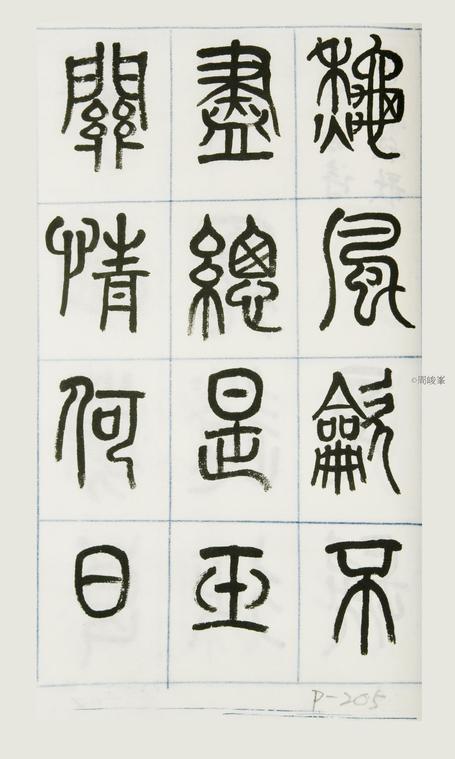 龝風龡不
盡總是玉
關情何日
P-205
©周峻峯